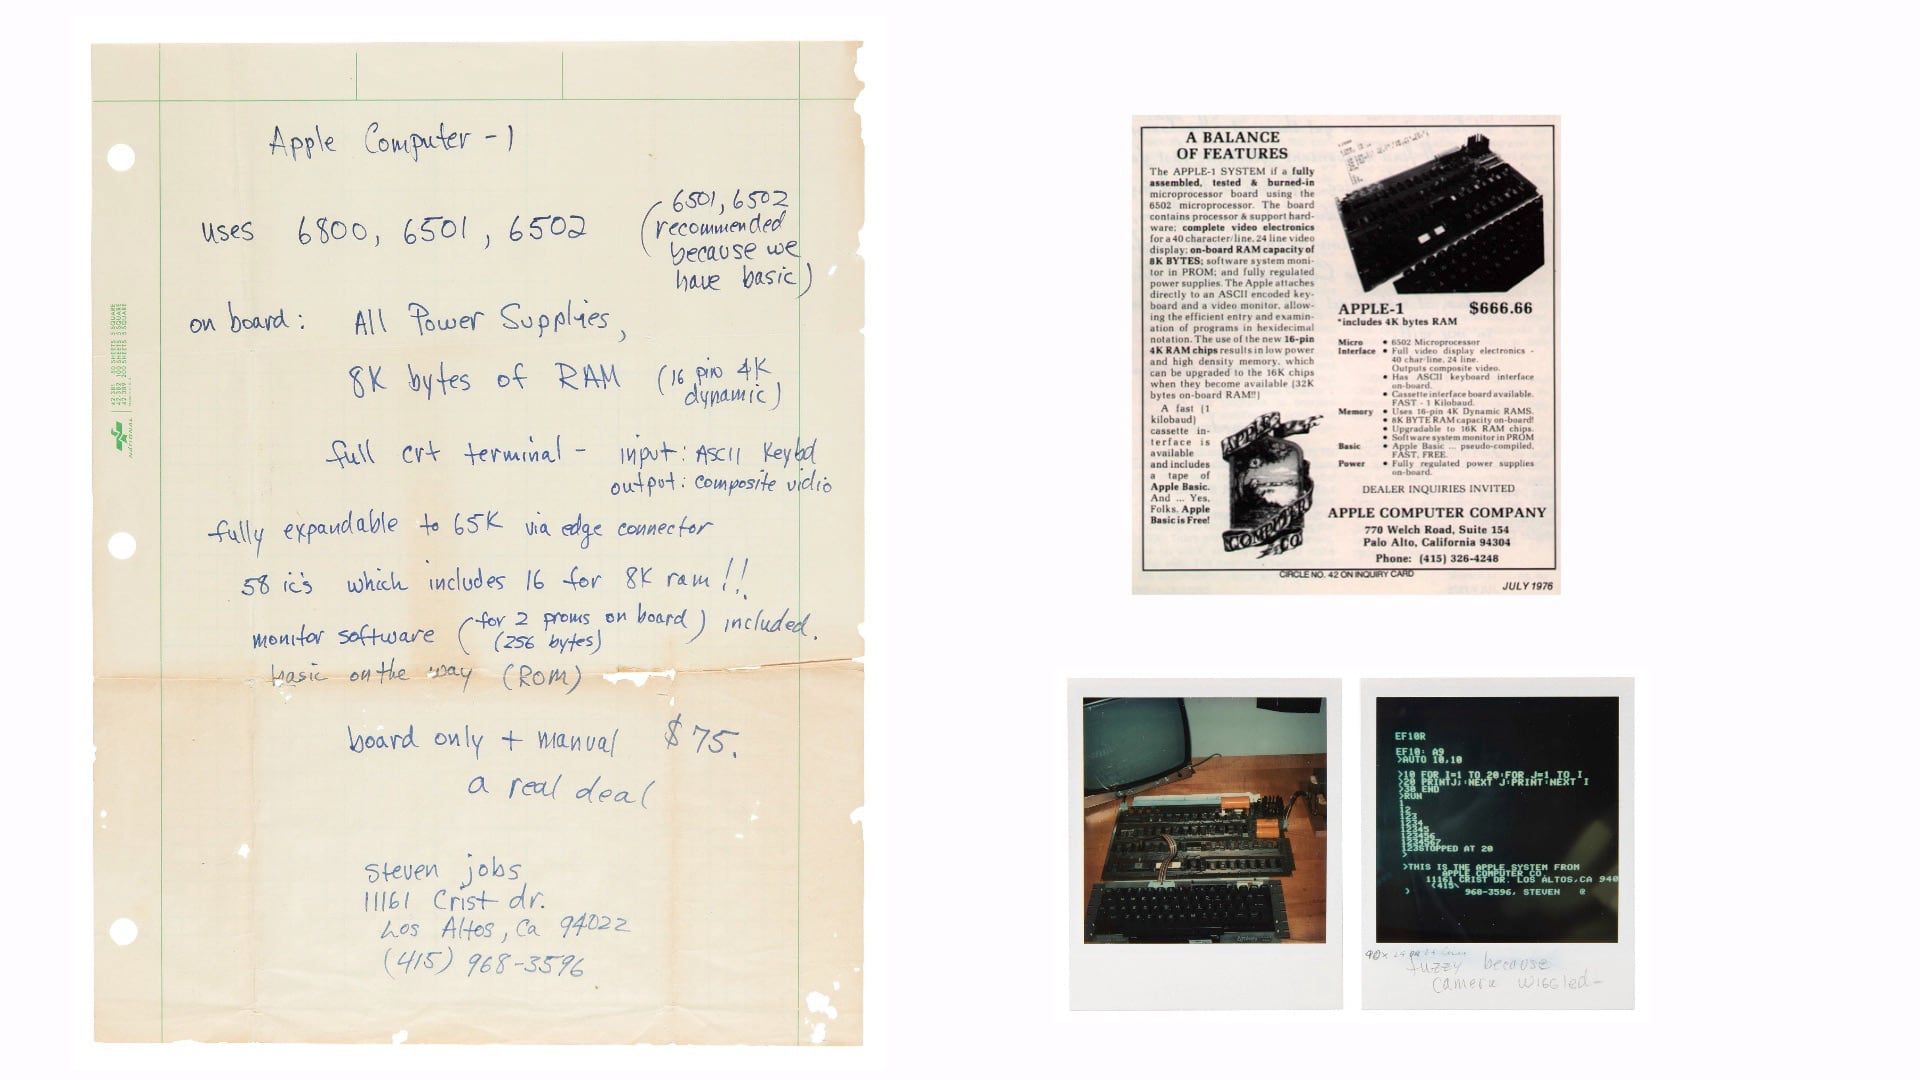 Apple Computer - 1
uses 6800, 6501, 6502
(6501, 6502
recommended
because we
have basic)
on board: All Power Supplies,
8K bytes of RAM (16 pin 4K
dynamic)
full crt terminal - input: ASCII Keybd
output: composite vidio
fully expandable to 65K via edge connector
58 ic's which includes 16 for 8K ram!!
monitor software (for 2 proms on board) included.
(256 bytes)
basic on the way (ROM)
board only + manual $75.
a real deal
steven jobs
11161 Crist dr.
Los Altos, Ca 94022
(415) 968-3596
NATIONAL
A BALANCE
OF FEATURES
The APPLE-1 SYSTEM if a fully
assembled, tested & burned-in
microprocessor board using the
6502 microprocessor. The board
contains processor & support hard-
ware; complete video electronics
for a 40 character/line, 24 line video
display; on-board RAM capacity of
8K BYTES; software system moni-
tor in PROM; and fully regulated
power supplies. The Apple attaches
directly to an ASCII encoded key-
board and a video monitor, allow-
ing the efficient entry and examin-
ation of programs in hexidecimal
notation. The use of the new 16-pin
4K RAM chips results in low power
and high density memory, which
can be upgraded to the 16K chips
when they become available (32K
bytes on-board RAM!!)
A fast (1
kilobaud)
cassette in-
terface is
available
and includes
a tape of
Apple Basic.
And ... Yes,
Folks, Apple
Basic is Free!
APPLE
COMPUTER
CO
APPLE-1 $666.66
*includes 4K bytes RAM
Micro • 6502 Microprocessor
Interface • Full video display electronics -
40 char/line, 24 line.
Outputs composite video.
• Has ASCII keyboard interface
on-board.
• Cassette interface board available.
FAST - 1 Kilobaud.
Memory • Uses 16-pin 4K Dynamic RAMS.
• 8K BYTE RAM capacity on-board!
• Upgradable to 16K RAM chips.
• Software system monitor in PROM
Basic • Apple Basic ... pseudo-compiled,
FAST, FREE.
Power • Fully regulated power supplies
on-board.
DEALER INQUIRIES INVITED
APPLE COMPUTER COMPANY
770 Welch Road, Suite 154
Palo Alto, California 94304
Phone: (415) 326-4248
CIRCLE NO. 42 ON INQUIRY CARD
JULY 1976
EF10R
EF10: A9
>AUTO 10,10
>10 FOR I=1 TO 20:FOR J=1 TO I
>20 PRINTJ;:NEXT J:PRINT:NEXT I
>30 END
>RUN
1
12
123
1234
12345
123456
1234567
123STOPPED AT 20
>
>THIS IS THE APPLE SYSTEM FROM
APPLE COMPUTER CO
11161 CRIST DR. LOS ALTOS,CA 940
(415\
> 968-3596, STEVEN @
fuzzy because
camera wiggled-